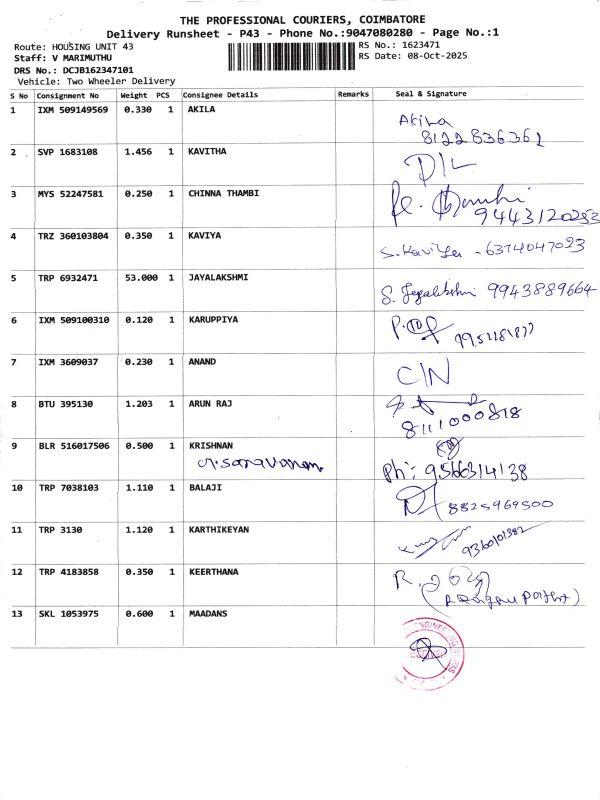 THE PROFESSIONAL COURIERS, COIMBATORE
Delivery Runsheet - P43 - Phone No.:9047080280 - Page No.:1
Route: HOUSING UNIT 43
RS No.: 1623471
Staff: V MARIMUTHU
RS Date: 08-Oct-2025
DRS No.: DCJB162347101
Vehicle: Two Wheeler Delivery
S No Consignment No Weight PCS Consignee Details Remarks Seal & Signature
1 IXM 509149569 0.330 1 AKILA Akila
8122836361
2 SVP 1683108 1.456 1 KAVITHA D/L
3 MYS 52247581 0.250 1 CHINNA THAMBI
9443120253
4 TRZ 360103804 0.350 1 KAVIYA S. Kaviya - 6374047023
5 TRP 6932471 53.000 1 JAYALAKSHMI S. Jeyalakshmi 9943889664
6 IXM 509100310 0.120 1 KARUPPIYA
7 IXM 3609037 0.230 1 ANAND C/N
8 BTU 395130 1.203 1 ARUN RAJ
8111000818
9 BLR 516017506 0.500 1 KRISHNAN
Saravanan Ph: 9566314138
10 TRP 7038103 1.110 1 BALAJI 8825969500
11 TRP 3130 1.120 1 KARTHIKEYAN 9360101382
12 TRP 4183858 0.350 1 KEERTHANA
13 SKL 1053975 0.600 1 MAADANS